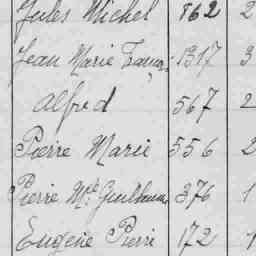 Jules Michel 862 2
Jean Marie Franço: 1317 3
Alfred 567 2
Pierre Marie 556 2
Pierre M.ie Guillaume 376 1
Eugène Pierre 172 1